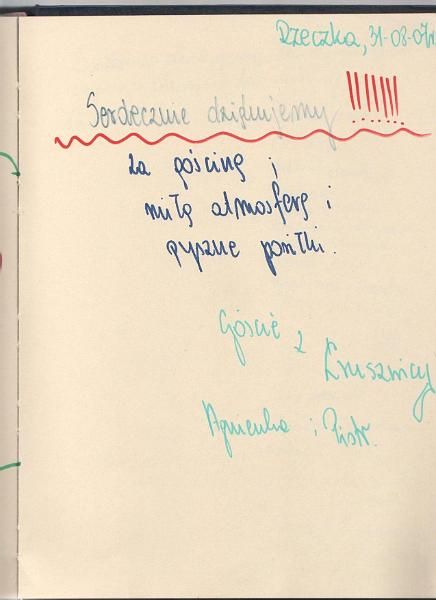 Rzeczka, 31-08-07r
Serdecznie dziękujemy !!!!!!!
za gościnę,
miłą atmosferę i
pyszne posiłki.
Goście z
Kruszwicy
Agnieszka i Piotr.